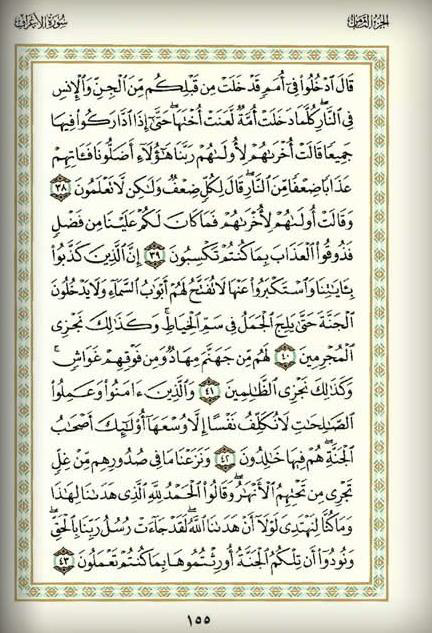 سورة الأعراف
الجزء الثامن
قَالَ ٱدْخُلُوا۟ فِىٓ أُمَمٍ قَدْ خَلَتْ مِن قَبْلِكُم مِّنَ ٱلْجِنِّ وَٱلْإِنسِ
فِى ٱلنَّارِ ۖ كُلَّمَا دَخَلَتْ أُمَّةٌ لَّعَنَتْ أُخْتَهَا ۖ حَتَّىٰٓ إِذَا ٱدَّارَكُوا۟ فِيهَا
جَمِيعًا قَالَتْ أُخْرَىٰهُمْ لِأُولَىٰهُمْ رَبَّنَا هَٰٓؤُلَآءِ أَضَلُّونَا فَـَٔاتِهِمْ
عَذَابًا ضِعْفًا مِّنَ ٱلنَّارِ ۖ قَالَ لِكُلٍّ ضِعْفٌ وَلَٰكِن لَّا تَعْلَمُونَ ٣٨
وَقَالَتْ أُولَىٰهُمْ لِأُخْرَىٰهُمْ فَمَا كَانَ لَكُمْ عَلَيْنَا مِن فَضْلٍ
فَذُوقُوا۟ ٱلْعَذَابَ بِمَا كُنتُمْ تَكْسِبُونَ ٣٩ إِنَّ ٱلَّذِينَ كَذَّبُوا۟
بِـَٔايَٰتِنَا وَٱسْتَكْبَرُوا۟ عَنْهَا لَا تُفَتَّحُ لَهُمْ أَبْوَٰبُ ٱلسَّمَآءِ وَلَا يَدْخُلُونَ
ٱلْجَنَّةَ حَتَّىٰ يَلِجَ ٱلْجَمَلُ فِى سَمِّ ٱلْخِيَاطِ ۚ وَكَذَٰلِكَ نَجْزِى
ٱلْمُجْرِمِينَ ٤٠ لَهُم مِّن جَهَنَّمَ مِهَادٌ وَمِن فَوْقِهِمْ غَوَاشٍ ۚ
وَكَذَٰلِكَ نَجْزِى ٱلظَّٰلِمِينَ ٤١ وَٱلَّذِينَ ءَامَنُوا۟ وَعَمِلُوا۟
ٱلصَّٰلِحَٰتِ لَا نُكَلِّفُ نَفْسًا إِلَّا وُسْعَهَآ أُو۟لَٰٓئِكَ أَصْحَٰبُ
ٱلْجَنَّةِ ۖ هُمْ فِيهَا خَٰلِدُونَ ٤٢ وَنَزَعْنَا مَا فِى صُدُورِهِم مِّنْ غِلٍّ
تَجْرِى مِن تَحْتِهِمُ ٱلْأَنْهَٰرُ ۖ وَقَالُوا۟ ٱلْحَمْدُ لِلَّهِ ٱلَّذِى هَدَىٰنَا لِهَٰذَا
وَمَا كُنَّا لِنَهْتَدِىَ لَوْلَآ أَنْ هَدَىٰنَا ٱللَّهُ ۖ لَقَدْ جَآءَتْ رُسُلُ رَبِّنَا بِٱلْحَقِّ ۖ
وَنُودُوٓا۟ أَن تِلْكُمُ ٱلْجَنَّةُ أُورِثْتُمُوهَا بِمَا كُنتُمْ تَعْمَلُونَ ٤٣
١٥٥